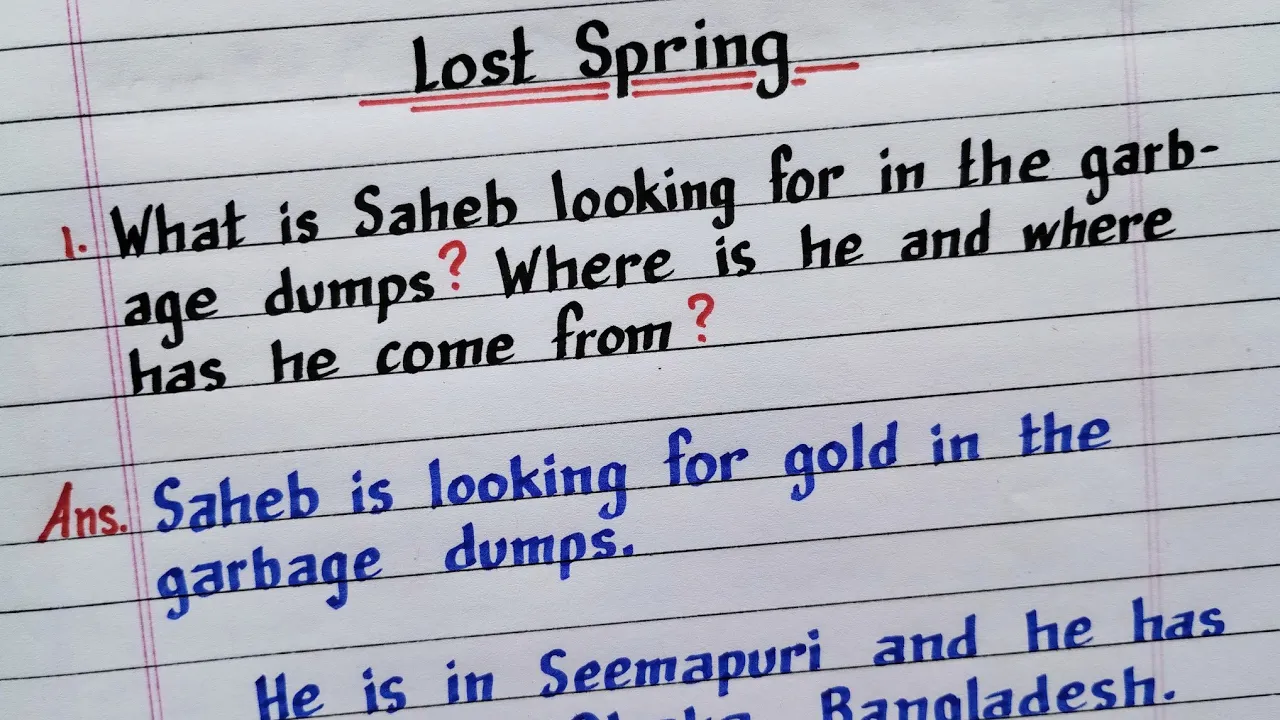 Lost Spring
1. What is Saheb looking for in the garb-
age dumps? Where is he and where
has he come from?
Ans. Saheb is looking for gold in the
garbage dumps.
He is in Seemapuri and he has
Bangladesh.